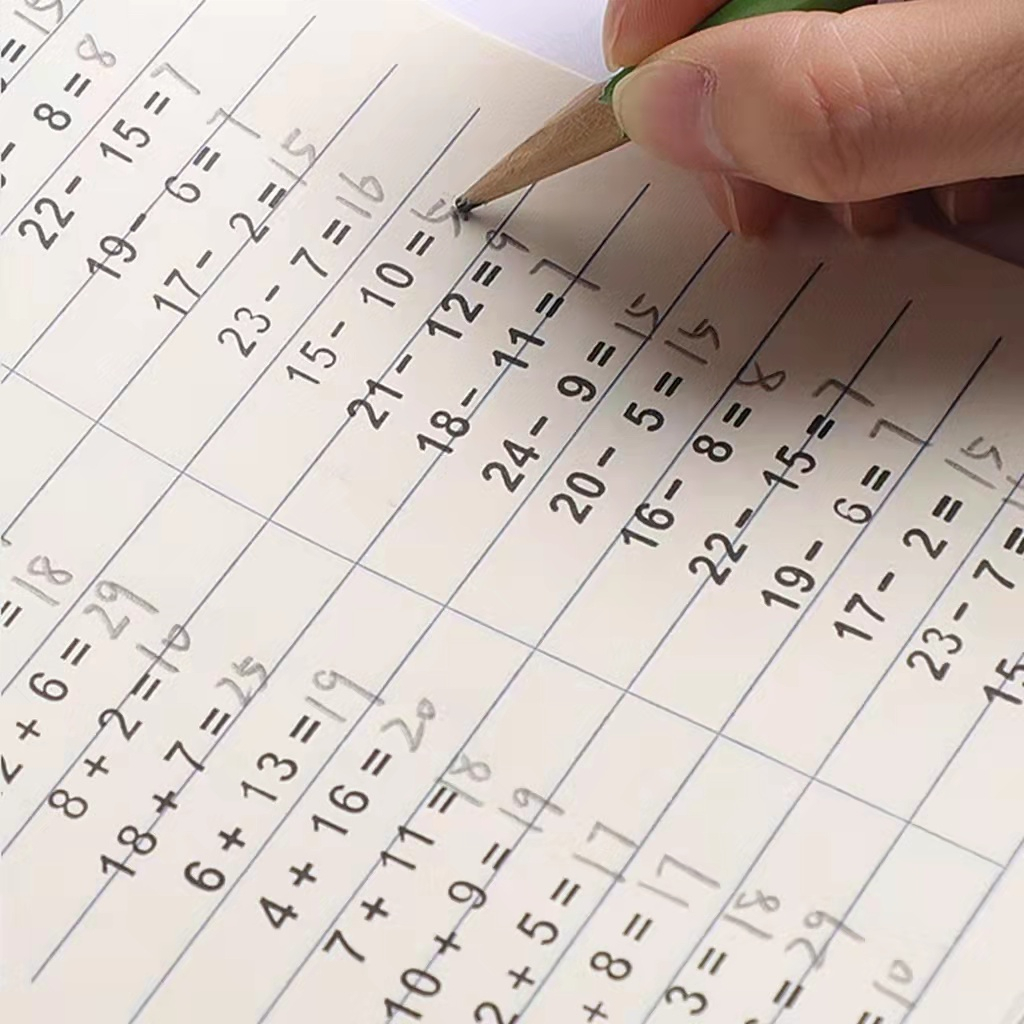 = 19
- 8 = 8
22 - 15 = 7
19 - 6 = 7
17 - 2 = 15
23 - 7 = 16
15 - 10 = 5
21 - 12 = 9
18 - 11 = 7
24 - 9 = 15
20 - 5 = 15
16 - 8 = 8
22 - 15 = 7
19 - 6 = 7
17 - 2 = 15
23 - 7 =
15
= 18
2 + 6 = 29
8 + 2 = 10
18 + 7 = 25
6 + 13 = 19
4 + 16 = 20
7 + 11 = 18
10 + 9 = 19
2 + 5 = 17
+ 8 = 17
3 = 18
= 29
= 10